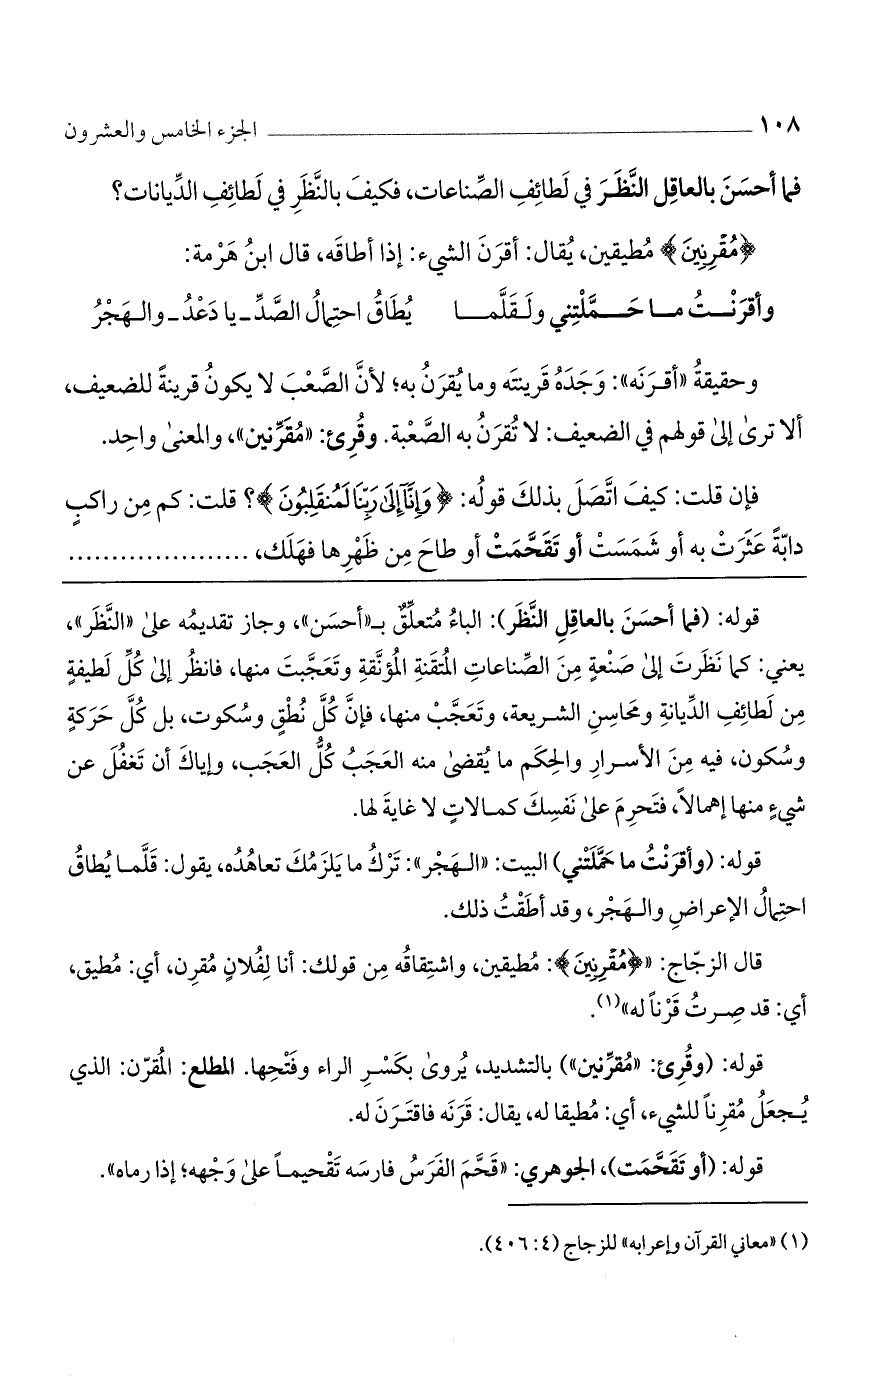 ١٠٨ ــــــ الجزء الخامس والعشرون
فما أحسَنَ بالعاقِلِ النَّظَرَ في لَطائِفِ الصِّناعات، فكيفَ بالنَّظَرِ في لَطائِفِ الدِّيانات؟
﴿مُقْرِنِينَ﴾ مُطيقين، يُقال: أقرَنَ الشيء: إذا أطاقَه، قال ابنُ هَرْمة:
وأقرَنْـــتُ مـــا حَـــمَّلْتِني ولَـقَلَّمـــا يُطَاقُ احتِمالُ الصَّدِّ ـ يا دَعْدُ ـ والـهَجْرُ
وحقيقةُ «أقـرَنَه»: وَجَدَهُ قَرينتَه وما يُقرَنُ به؛ لأنَّ الصَّعْبَ لا يكونُ قرينةً للضعيف،
ألا ترىٰ إلىٰ قولهم في الضعيف: لا تُقرَنُ به الصَّعْبة. وقُرِئ: «مُقَرِّنين»، والمعنىٰ واحِد.
فإن قلت: كيفَ اتَّصَلَ بذلكَ قولُه: ﴿وَإِنَّآ إِلَىٰ رَبِّنَا لَمُنقَلِبُونَ﴾؟ قلت: كم مِن راكبٍ
دابّةً عَثَرَتْ به أو شَمَسَتْ أو تَقَحَّمَتْ أو طاحَ مِن ظَهْرِها فهَلَك، .....................
قوله: (فما أحسَنَ بالعاقِلِ النَّظَر): الباءُ مُتعلِّقٌ بـ«أحسَن»، وجاز تقديمُه علىٰ «النَّظَر»،
يعني: كما نَظَرتَ إلىٰ صَنْعةٍ مِنَ الصِّناعاتِ المُتقَنةِ المُؤنَّقةِ وتَعَجَّبتَ منها، فانظُر إلىٰ كُلِّ لَطيفةٍ
مِن لَطائفِ الدِّيانةِ ومَحاسِنِ الشريعة، وتَعَجَّبْ منها، فإنَّ كُلَّ نُطْقٍ وسُكوت، بل كُلَّ حَرَكةٍ
وسُكون، فيه مِنَ الأسـرارِ والحِكَم ما يُقضىٰ منه العَجَبُ كُلُّ العَجَب، وإياكَ أن تَغفُلَ عن
شيءٍ منها إهمالاً، فتَحرِمَ علىٰ نَفسِكَ كمـالاتٍ لا غايةَ لها.
قوله: (وأقرَنْتُ ما حَمَّلَتْني) البيت: «الـهَجْر»: تَرْكُ ما يَلزَمُكَ تعاهُدُه، يقول: قَلَّمـا يُطاقُ
احتِمالُ الإعراضِ والـهَجْر، وقد أطَقْتُ ذلك.
قال الزجّاج: «﴿مُقْرِنِينَ﴾: مُطيقين، واشتِقاقُه مِن قولك: أنا لِفُلانٍ مُقرِن، أي: مُطيق،
أي: قد صِـرتُ قَرْناً له»(١).
قوله: (وقُرِئ: «مُقرِّنين») بالتشديد، يُروىٰ بكَسْـرِ الراء وفَتْحِها. المطلع: المُقرَّن: الذي
يُـجعَلُ مُقرِناً للشيء، أي: مُطيقا له، يقال: قَرَنَه فاقتَـرَنَ له.
قوله: (أو تَقَحَّمَت)، الجوهري: «قَحَّمَ الفَرَسُ فارسَه تَقْحيمـاً علىٰ وَجْهه؛ إذا رماه».
(١) «معاني القرآن وإعرابه» للزجاج (٤: ٤٠٦).